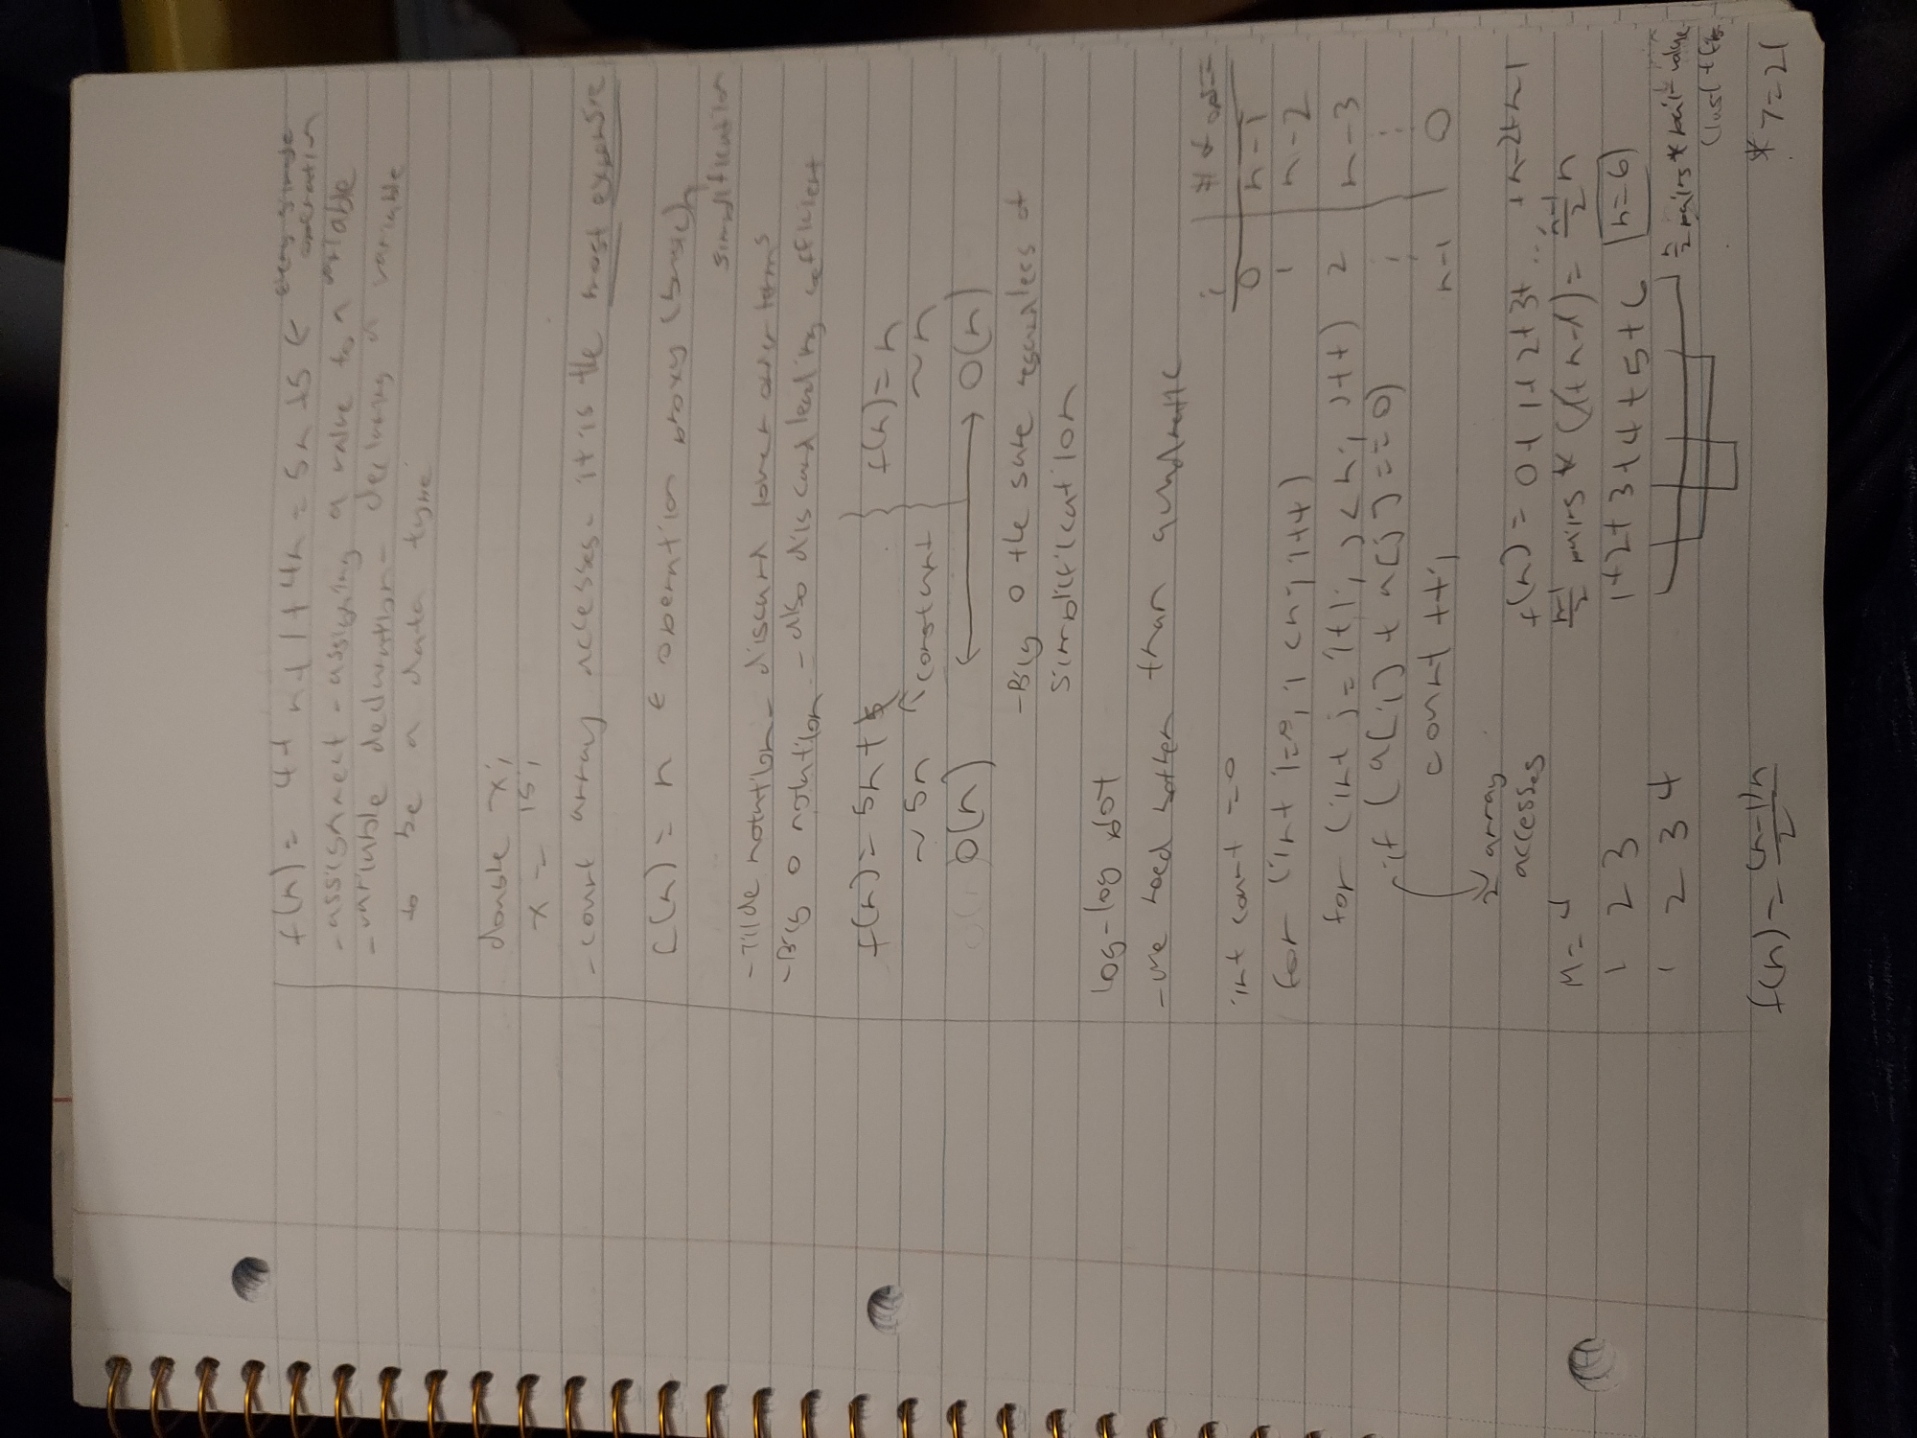 f(n) = 4 + n + 1 + 4n = 5n + 5 ← every single operation
- assignment - assigning a value to a variable
- variable declaration - declaring a variable
to be a data type
double x;
x = 15;
- count array accesses - it is the most expensive
C(n) = n ← operation proxy (basic)
simplification
- Tilde notation - discard lower order terms
- Big O notation - also discard leading coefficient
f(n) = 5n + 5 } f(n) = n
~ 5n ↖ constant } ~ n
O(n) ⟷ O(n)
- Big O the same regardless of
simplification
log-log plot
- use need better than quadratic
int count = 0
for (int i = 0; i < n; i++)
for (int j = i+1; j < n; j++)
if (a[i] + a[j] == 0)
count ++;
2 array
accesses
i | # of
0 | n-1
1 | n-2
2 | n-3
⋮ | ⋮
n-1 | 0
f(n) = 0 + 1 + 2 + 3 + ... + n-2 + n-1
n-1/2 pairs * (1+n-1) = n-1/2 n
1 + 2 + 3 + 4 + 5 + 6 n=6
n/2 pairs * pair value
(last + first)
1 2 3
1 2 3 4
f(n) = (n-1)n/2 * 7 = 21